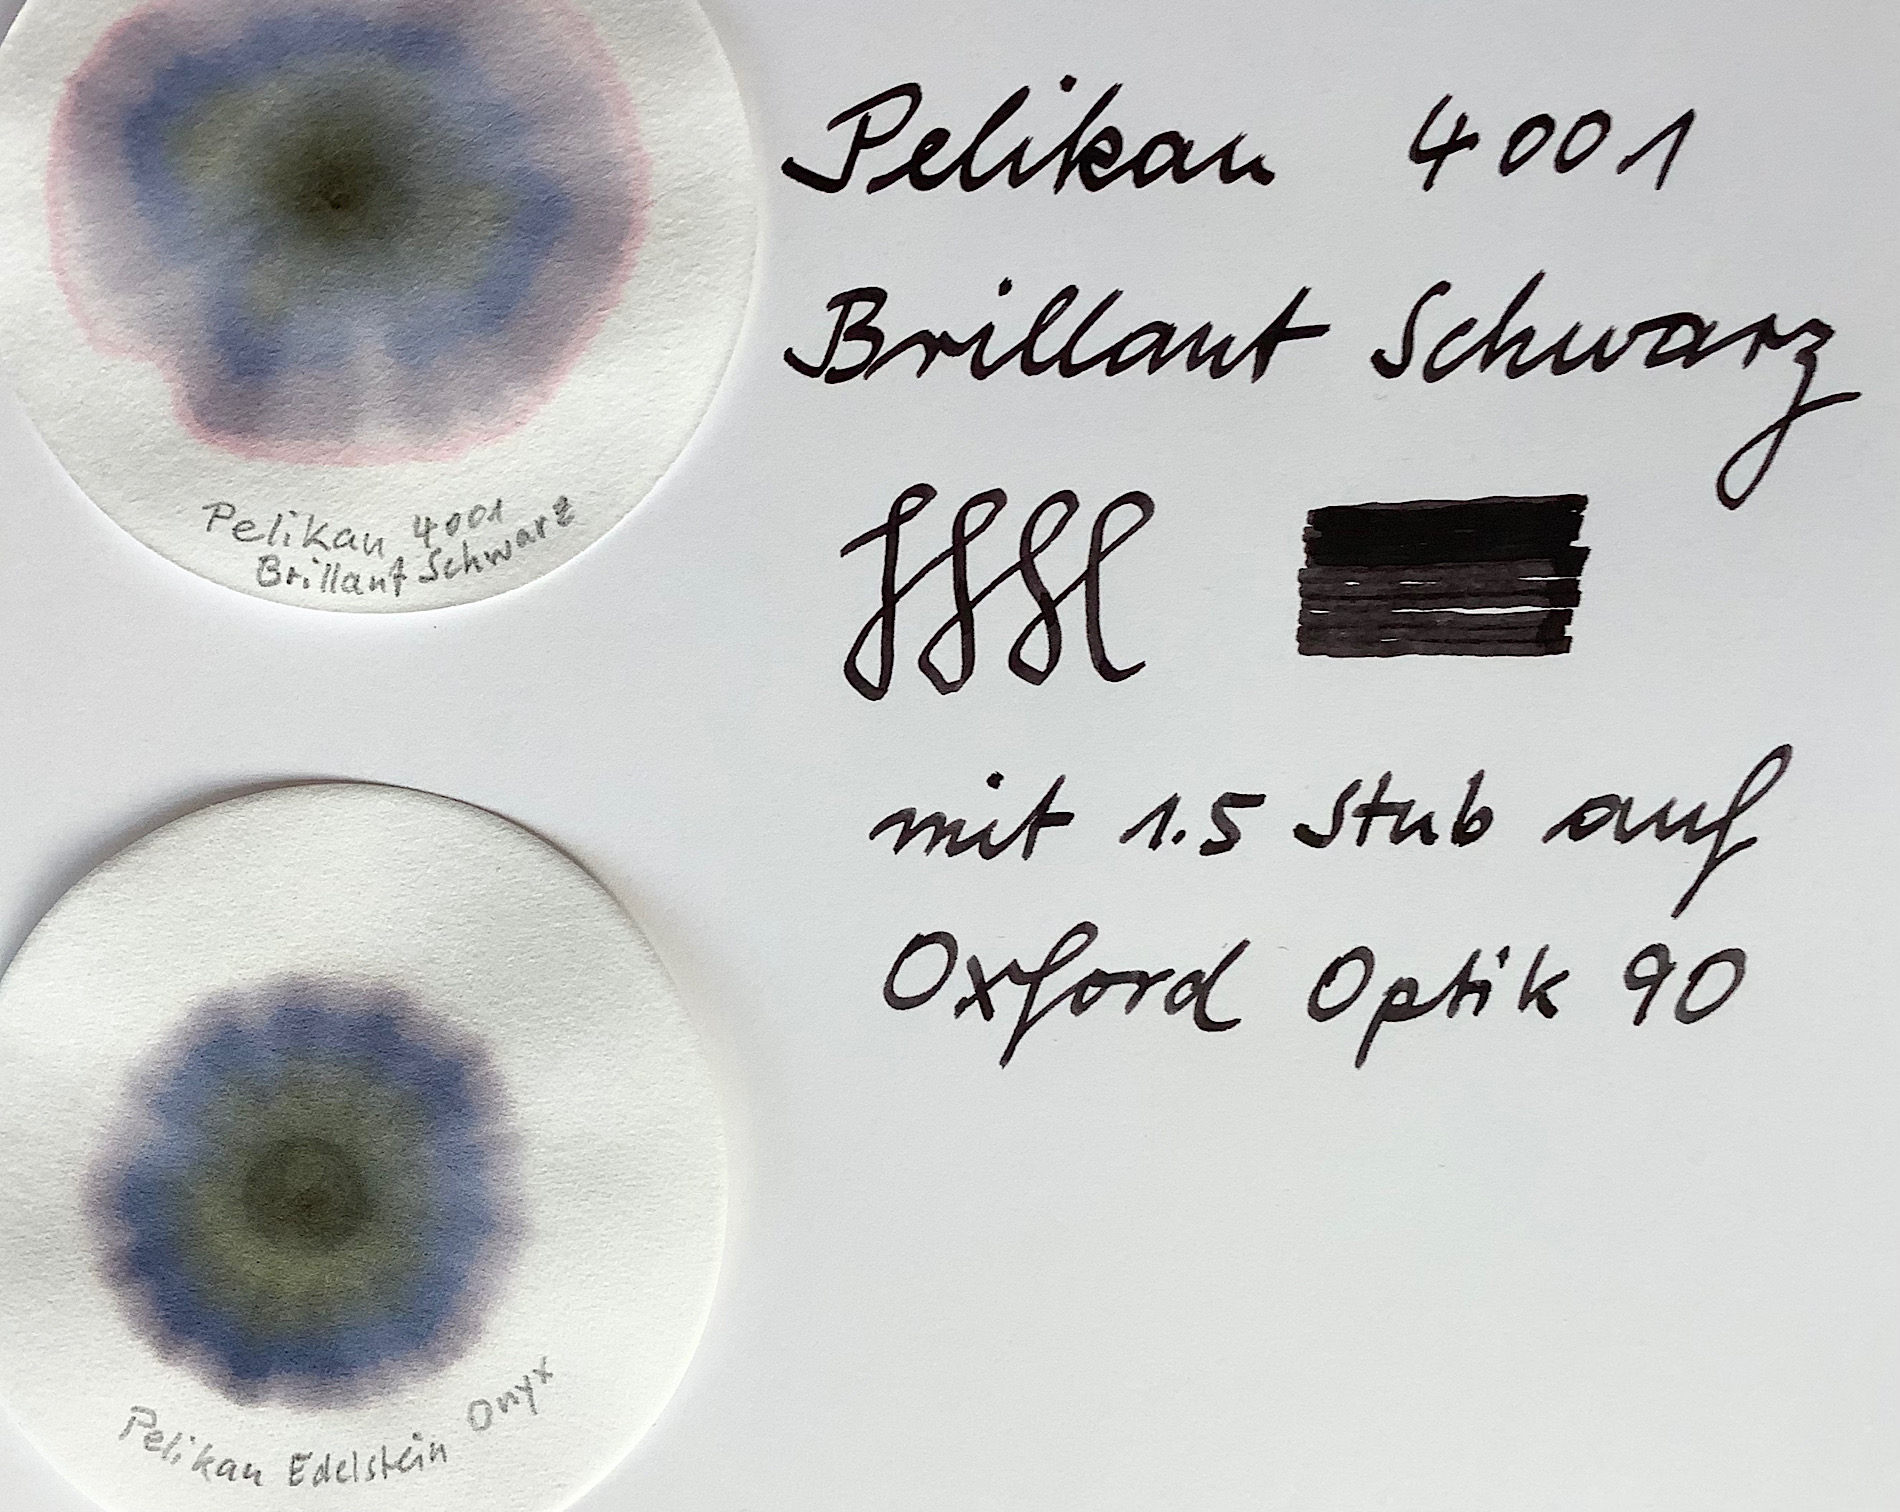 Pelikan 4001
Brillant Schwarz
mit 1.5 Stub auf
Oxford Optik 90
Pelikan 4001
Brillant Schwarz
Pelikan Edelstein Onyx